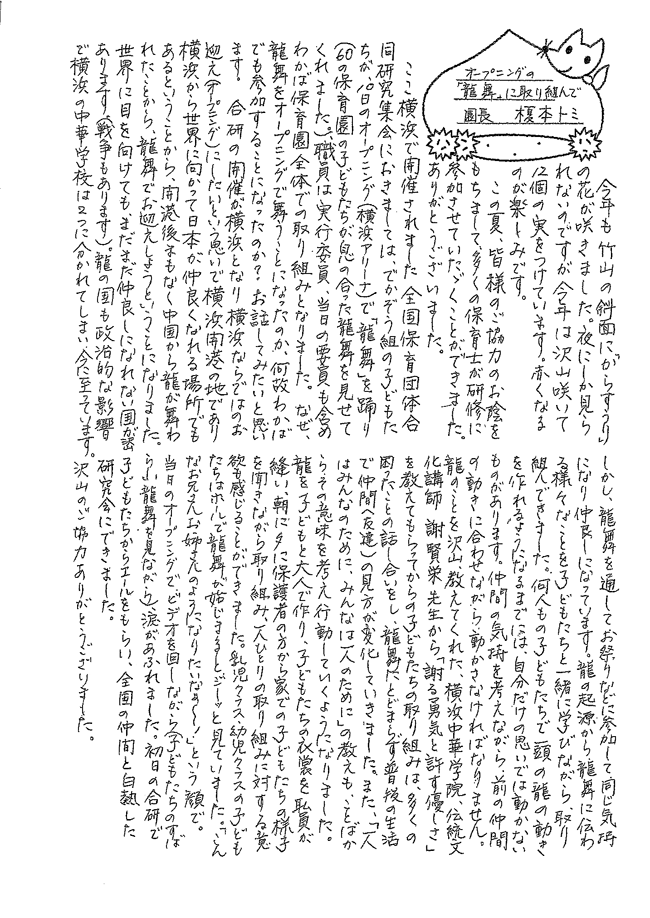 オープニングの
「龍舞」に取り組んで
園長 榎本トミ
今年も竹山の斜面に「からすうり」
の花が咲きました。夜にしか見ら
れないのですが今年は沢山咲いて
12個の実をつけています。赤くなる
のが楽しみです。
この夏、皆様のご協力のお陰を
もちまして、多くの保育士が研修に
参加させていただくことができました。
ありがとうございました。
ここ横浜で開催されました全国保育団体合
同研究集会におきましては、でかぞう組の子どもた
ちが、初日のオープニング(横浜アリーナ)で「龍舞」を踊り
(60の保育園の子どもたちが息の合った龍舞を見せて
くれました)、職員は実行委員、当日の要員も含め
わかば保育園全体での取り組みとなりました。なぜ、
龍舞をオープニングで舞うことになったのか、何故わかば
でも参加することになったのか?お話してみたいと思い
ます。合研の開催が横浜となり横浜ならではのお
迎え(オープニング)にしたいという思いで横浜開港の地であり
横浜から世界に向かって日本が仲良くなれる場所でも
あるということから、開港後まもなく中国から龍が舞わ
れたことから、龍舞でお迎えしようということになりました。
世界に目を向けてもまだまだ仲良しになれない国が沢山
あります(戦争もあります)。龍の国も政治的な影響
で横浜の中華学校は2つに分かれてしまい今に至っています。
しかし、龍舞を通してお祭りなどに参加して同じ気持
になり仲良しになっています。龍の起源から龍舞に伝わ
る様々なことを子どもたちと一緒に学びながら、取り
組んできました。何人もの子どもたちで一頭の龍の動き
を作れるようになるまでには、自分だけの思いでは動かない
ものがあります。仲間の気持を考えながら、前の仲間
の動きに合わせながら、動かさなければなりません。
龍のことを沢山教えてくれた、横浜中華学院、伝統文
化講師 謝賢栄先生から「謝る勇気と許す優しさ」
を教えてもらってからの子どもたちの取り組みは、多くの
困ったことの話し合いをし、龍舞だけにとどまらず普段の生活
で仲間(友達)の見方が変化していきました。また、「一人
はみんなのために、みんなは一人のために」の教えも、ことばか
らその意味を考え行動していくようになりました。
龍を子どもと大人で作り、子どもたちの衣裳を職員が
縫い、朝に夕に保護者の方から家での子どもたちの様子
を聞きながら取り組み、一人ひとりの取り組みに対する意
欲も感じることができました。乳児クラス・幼児クラスの子ども
たちはホールで龍舞が始まるとじーッと見ていました。「こん
なお兄さんお姉さんのようになりたいなぁ~」という顔で。
当日のオープニングで、ビデオを回しながら(子どもたちのすば
らしい龍舞を見ながら)涙があふれました。初日の合研で
子どもたちからエールをもらい、全国の仲間と白熱した
研究会にできました。
沢山のご協力ありがとうございました。